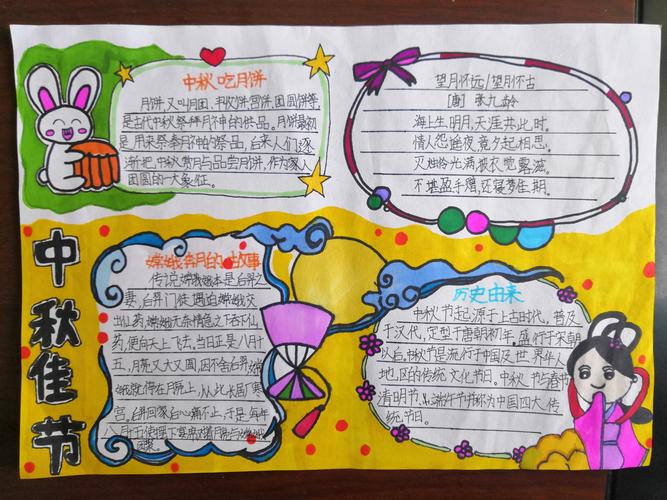 中秋吃月饼
月饼,又叫月团、丰收饼、宫饼、团圆饼等,
是古代中秋祭拜月神的供品。月饼最初
是用来祭奉月神的祭品,后来人们逐
渐把中秋赏月与品尝月饼,作为家人
团圆的一大象征。
望月怀远/望月怀古
[唐] 张九龄
海上生明月,天涯共此时。
情人怨遥夜,竟夕起相思。
灭烛怜光满,披衣觉露滋。
不堪盈手赠,还寝梦佳期。
中秋佳节
嫦娥奔月的故事
传说嫦娥本是后羿之
妻,后羿门徒
出仙药,嫦娥无奈情急之下吞下仙
药,便向天上飞去,当日正是八月十
五,月亮又大又圆,因不舍后羿,嫦
娥就停在月亮上,从此长居广寒
宫。后羿回家后心痛不止,于是每年
八月十五便
历史由来
中秋节起源于上古时代,普及
于汉代,定型于唐朝初年,盛行于宋朝
以后。中秋节是流行于中国及世界华人
地区的传统文化节日。中秋节与春节
清明节、端午节并称为中国四大传
统节日。